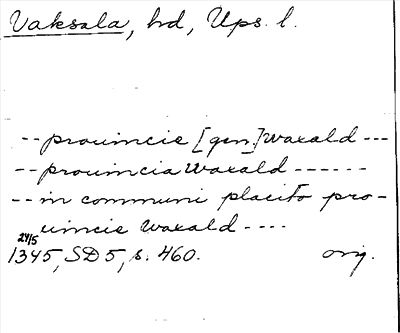 Vaksala, hd, Ups. l.
-- prouincie [gen.] waxald ---
-- prouincia waxald ------
-- in communi placito pro-
uincie waxald ----
24/5
1345, SD 5, s. 460. orig.